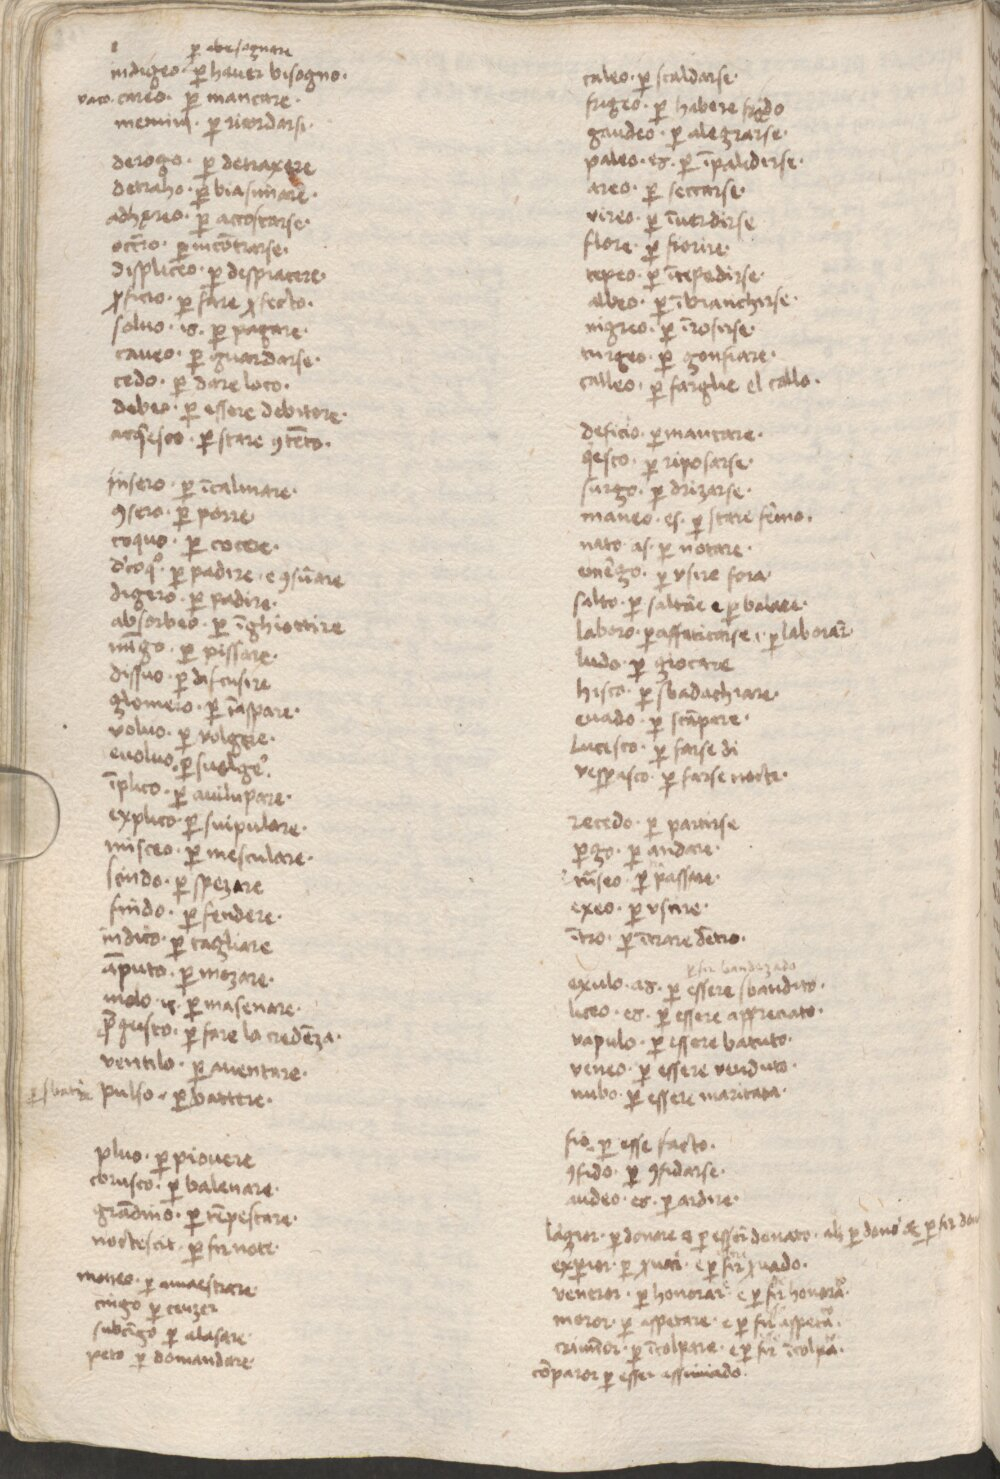 ꝑ abesognare
indigeo · ꝑ haver bisogno ·
vaco · careo · ꝑ mancare ·
memini · ꝑ ricordarsi ·
derogo · ꝑ detraxere
detraho · ꝑ biasmare ·
adhęreo · ꝑ accostarse ·
occ̄ro · ꝑ incōtrarse ·
displiceo · ꝑ despiacere ·
ꝓficio · ꝑ fare ꝓfecto ·
soluo · is · ꝑ pagare ·
caueo · ꝑ guardarse ·
cedo · ꝑ dare loco ·
debeo · ꝑ essere debitore ·
acq̄esco · ꝑ stare ꝯtēto ·
insero · ꝑ īcalmare ·
ꝯsero · ꝑ porre
coquo · ꝑ cocere ·
d'coq° · ꝑ padire · e ꝯsūare
digero · ꝑ padire ·
absorbeo · ꝑ īghiottire
mīgo · ꝑ pissare ·
dissuo · ꝑ discusire
glomero · ꝑ īaspare ·
voluo · ꝑ volgere ·
euoluo · ꝑ suolge' ·
īplico · ꝑ auilupare ·
explico · ꝑ suipulare ·
misceo · ꝑ mesculare ·
scindo · ꝑ spezare
findo · ꝑ fendere ·
incido · ꝑ tagliare
āputo · ꝑ mozare ·
molo · is · ꝑ masenare ·
p̄gusto · ꝑ fare la credēza ·
ventilo · ꝑ auentare ·
ꝑ sbatere pulso · ꝑ battere ·
pluo · ꝑ piouere
corusco · ꝑ balenare ·
grādino · ꝑ tēpestare ·
noctescit · ꝑ fir note ·
moneo · ꝑ amaestrare
cingo ꝑ cenzer
subcīgo ꝑ alasare ·
peto ꝑ domandare ·
caleo · ꝑ scaldarse ·
frigeo · ꝑ habere frīdo
gaudeo · ꝑ alegrarse ·
paleo · es · ꝑ īpalidirse ·
areo · ꝑ seccarse ·
vireo · ꝑ īuerdirse
flore · ꝑ fiorire ·
tepeo · ꝑ ītepidirse ·
albeo · ꝑ ībianchirse ·
nigreo · ꝑ īrosirse ·
turgeo · ꝑ gonfiare ·
calleo · ꝑ farghe el callo ·
deficio · ꝑ mancare ·
q̄esco · ꝑ riposarse ·
surgo · ꝑ drizarse ·
maneo · es · ꝑ stare fermo ·
nato · as · ꝑ notare ·
emergo · ꝑ usire fora ·
salto · ꝑ saltāre e ꝑ balare ·
laboro · ꝑ affaticarse · e · ꝑ laborar̄ ·
ludo · ꝑ giocare
hisco · ꝑ sbadachiare ·
euado · ꝑ scāpare ·
lucesco · ꝑ farse di
vesꝑasco · ꝑ farse nocte ·
recedo · ꝑ partirse
ꝑgo · ꝑ andare ·
trāseo · ꝑ passare ·
exeo · ꝑ uscire ·
ītro · ꝑ ītrare dētro ·
ꝑ fir bandezado
exulo · as · ꝑ essere sbandito ·
liceo · es · ꝑ essere appreciato ·
vapulo · ꝑ essere batuto ·
veneo · ꝑ essere venduto ·
nubo · ꝑ essere maritata ·
fio · ꝑ esse facto ·
ꝯfido · ꝑ ꝯfidarse ·
audeo · es · ꝑ ardire ·
largior · ꝑ donare e ꝑ esser̄ donato ·
experior · ꝑ ꝓuar̄ · e ꝑ fir ꝓuado ·
veneror · ꝑ honorar̄ · e ꝑ fir honora° ·
moror · ꝑ aspetare · e ꝑ fir aspeta° ·
crimīor · ꝑ īcolpare · e ꝑ fir īcolpa° ·
cōparor ꝑ esser assimiado ·